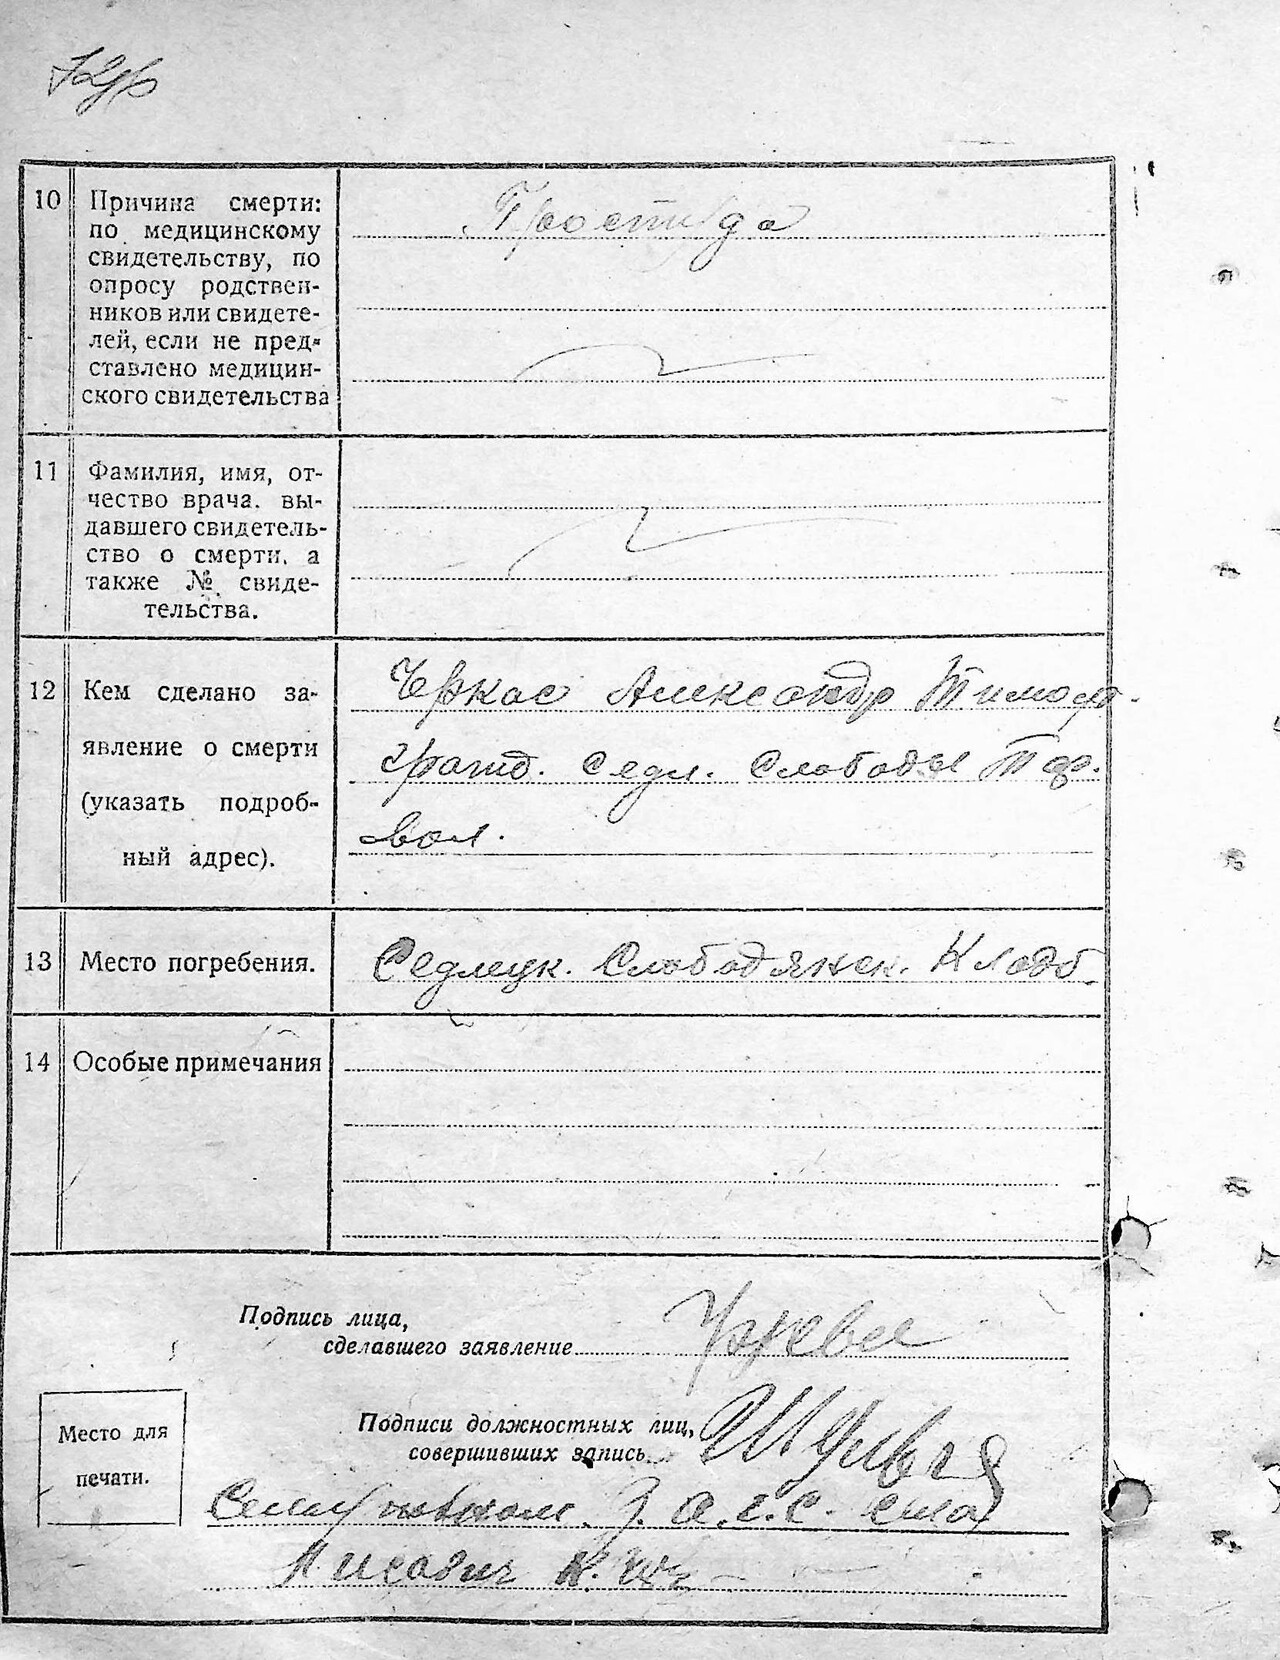 10 Причина смерти:
по медицинскому
свидетельству, по
опросу родствен-
ников или свидете-
лей, если не пред-
ставлено медицин-
ского свидетельства
Простуда
11 Фамилия, имя, от-
чество врача. вы-
давшего свидетель-
ство о смерти, а
также № свиде-
тельства.
12 Кем сделано за-
явление о смерти
(указать подроб-
ный адрес).
Черкас Александр Тимоф.
гражд. Седл. Слободы
вол.
13 Место погребения.
Седлецк. Слободянск. Кладб.
14 Особые примечания
Подпись лица,
сделавшего заявление
Подписи должностных лиц,
совершивших запись.
Место для
печати.